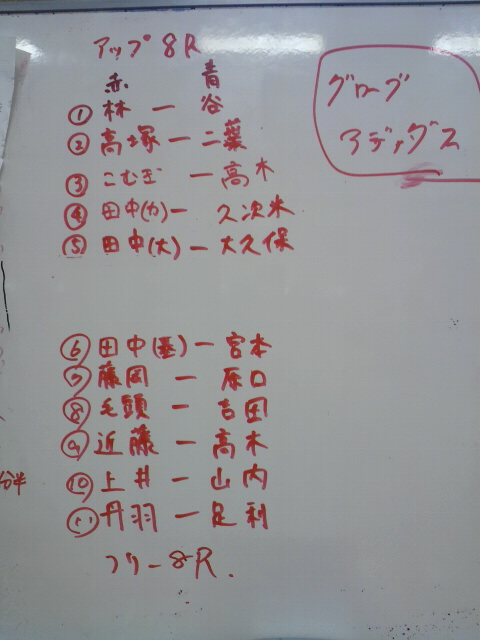 アップ 8R
赤 青
① 林 ー 谷
② 高塚 ー 二葉
③ こむぎ ー 高木
④ 田中(カ) ー 久次米
⑤ 田中(大) ー 大久保
⑥ 田中(基) ー 宮本
⑦ 藤岡 ー 原口
⑧ 毛頭 ー 吉田
⑨ 近藤 ー 高木
⑩ 上井 ー 山内
⑪ 丹羽 ー 足利
フリー 8R.
グローブ
アディダス
分半